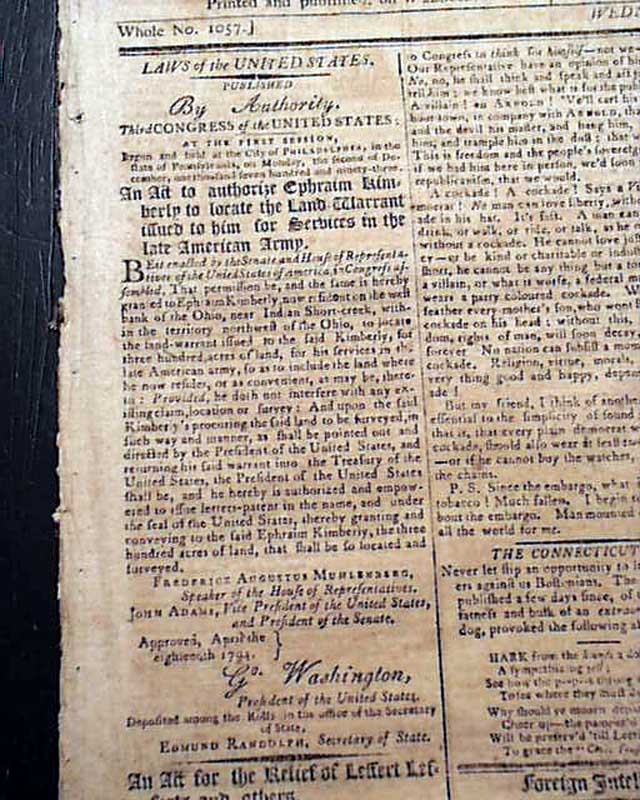 Printed and published, on
WED
Whole No. 1057.]
LAWS of the UNITED STATES.
PUBLISHED
By Authority.
Third CONGRESS of the UNITED STATES:
AT THE FIRST SESSION,
Begun and held at the City of PHILADELPHIA, in the
state of Pennsylvania, on Monday, the second of De-
cember, one thousand seven hundred and ninety-three.
An Act to authorize Ephraim Kim-
berly to locate the Land Warrant
issued to him for Services in the
late American Army.
BE it enacted by the Senate and House of Representa-
tives of the United States of America, in Congress as-
sembled, That permission be, and the same is hereby
granted to Ephraim Kimberly, now resident on the west
bank of the Ohio, near Indian Short-creek, with-
in the territory northwest of the Ohio, to locate
the land-warrant issued to the said Kimberly, for
three hundred acres of land, for his services in the
late American army, so as to include the land where
he now resides, or as convenient, as may be, there-
to: Provided, he doth not interfere with any ex-
isting claim, location or survey: And upon the said
Kimberly's procuring the said land to be surveyed, in
such way and manner, as shall be pointed out and
directed by the President of the United States, and
returning his said warrant into the Treasury of the
United States, the President of the United States
shall be, and he hereby is authorized and empow-
ered to issue letters-patent in the name, and under
the seal of the United States, thereby granting and
conveying to the said Ephraim Kimberly, the three
hundred acres of land, that shall be so located and
surveyed.
FREDERICK AUGUSTUS MUHLENBERG,
Speaker of the House of Representatives.
JOHN ADAMS, Vice President of the United States,
and President of the Senate.
Approved, April the
eighteenth 1794.
Go. Washington,
President of the United States.
Deposited among the Rolls in the office of the Secretary
of State,
EDMUND RANDOLPH, Secretary of State.
An Act for the Relief of Leffert Lef-
ferts and others.
o Congress to think for himself—not we
Our Representative have an opinion of his
No, no, he shall think and speak and act
tell him; we know best what is for the pub
A villain! an ARNOLD! We'll cart his
boat-town, in company with ARNOLD, th
and the devil his master, and hang him,
him, and trample him in the dust; that
This is freedom and the people's sovereig
if we had him here in person, we'd soon
republicanism, that we would.
A cockade! A cockade! Says a
emocrat! No man can love liberty, witho
ade in his hat. It's fast. A man can
drink, or walk, or ride, or talk, as he
without a cockade. He cannot love
cry—or be kind or charitable or indust
short, he cannot be any thing but a
a villain, or what is worse, a federal
wears a party coloured cockade.
feather every mother's son, who wont
cockade on his head; without this,
dom, rights of man, will soon decay,
forever No nation can subsist a mom
cockade. Religion, virtue, morals,
very thing good and happy, depend
ade!
But my friend, I think of another
essential to the simplicity of
that is, that every plain democrat
cockade, should also wear
—or if he cannot buy the watches,
the chains.
P. S. Since the embargo, what
tobacco! Much fallen. I begin
bout the embargo. Man mounted
all the world for me.
THE CONNECTICUT
Never let slip an opportunity to
ers against us Bostonians. The
published a few days since, of
fatness and bulk of an extraor
dog, provoked the following
HARK from the
A sympathising
See how the
Totes where they must
Why should we mourn depart
Cheer up—the
Will be
To grace the
Foreign Intel